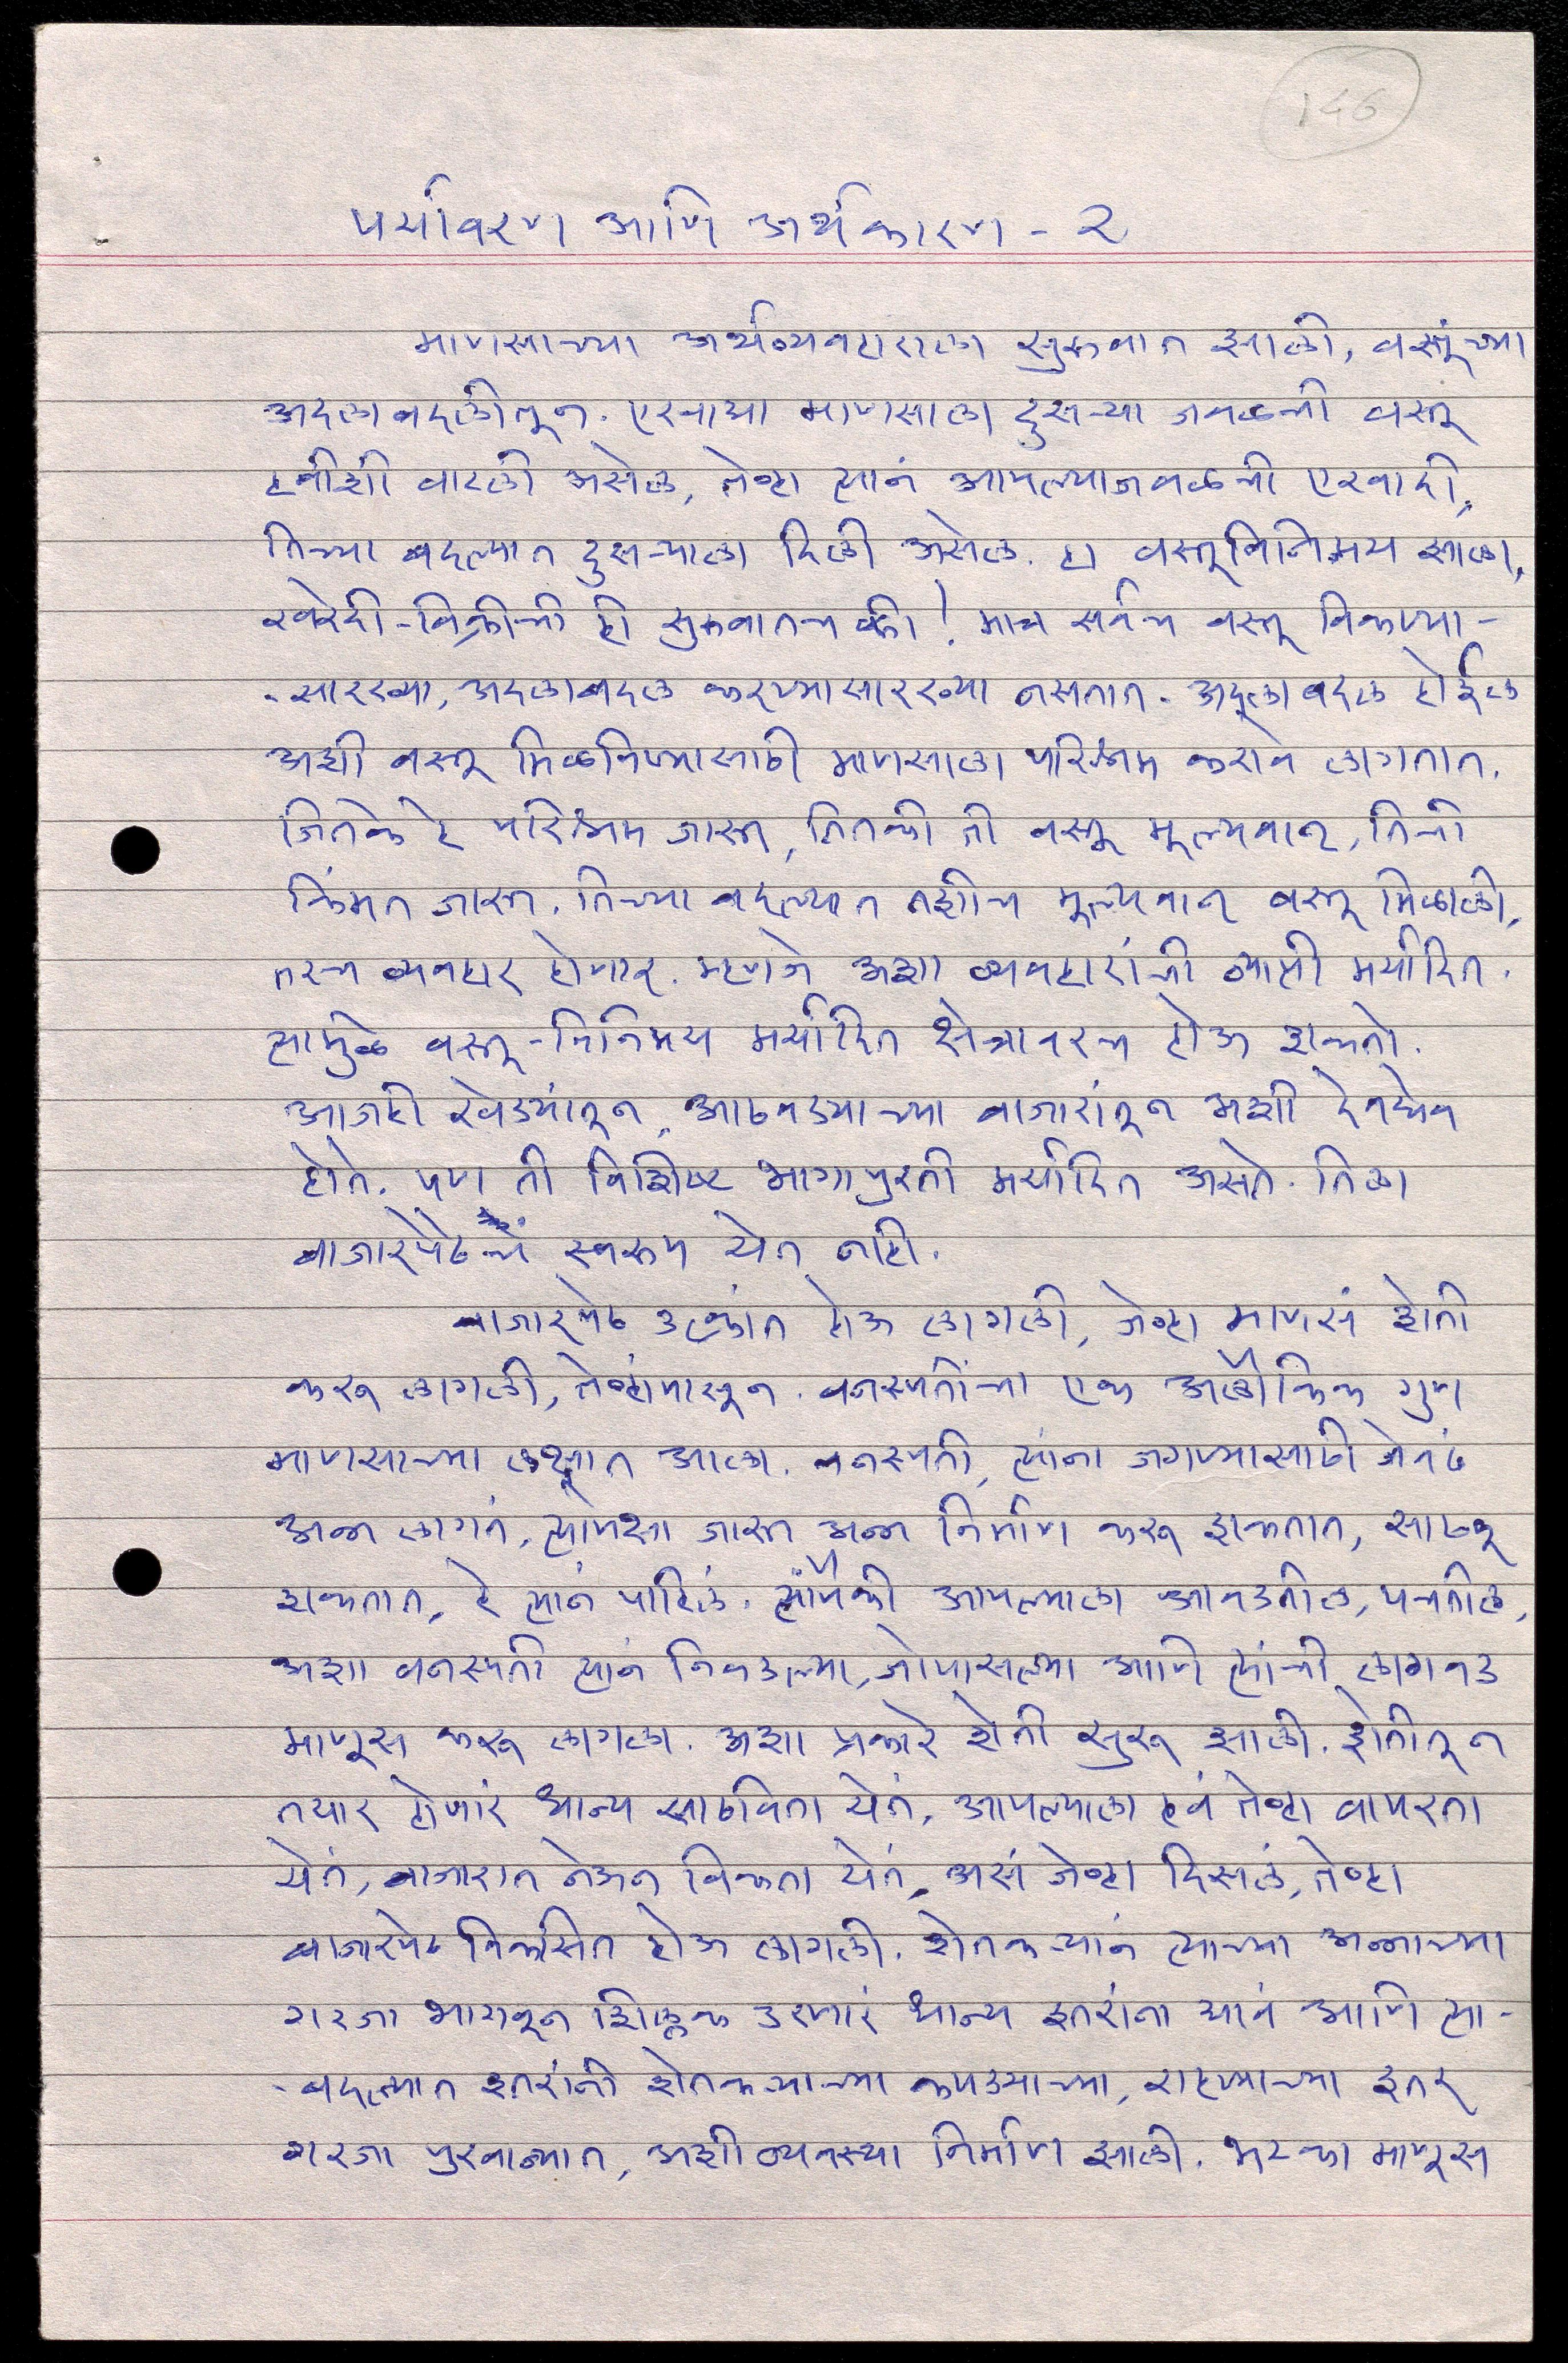 146
पर्यावरण आणि अर्थकारण - २
माणसाच्या अर्थव्यवहाराला सुरुवात झाली, वस्तूंच्या
अदलाबदलीतून. एखाद्या माणसाला दुसऱ्या जवळची वस्तू
हवीशी वाटली असेल, तेव्हा त्यानं आपल्याजवळची एखादी,
तिच्या बदल्यात दुसऱ्याला दिली असेल. हा वस्तूविनिमय झाला.
खरेदी-विक्रीची ही सुरुवातच की! मात्र सर्वच वस्तू विकण्या-
-सारख्या, अदलाबदल करण्यासारख्या नसतात. अदलाबदल होईल
अशी वस्तू मिळविण्यासाठी माणसाला परिश्रम करावे लागतात.
जितके हे परिश्रम जास्त, तितकी ती वस्तू मूल्यवान, तिची
किंमत जास्त. तिच्या बदल्यात तशीच मूल्यवान वस्तू मिळाली,
तरच व्यवहार होणार. म्हणजे अशा व्यवहारांची व्याप्ती मर्यादित.
त्यामुळे वस्तू-विनिमय मर्यादित क्षेत्रावरच होऊ शकतो.
आजही खेड्यांतून, आठवड्याच्या बाजारांतून अशी देवघेव
होते. पण ती विशिष्ट भागापुरती मर्यादित असते. तिला
बाजारपेठेचं स्वरूप येत नाही.
बाजारपेठ उत्क्रांत होऊ लागली, जेव्हा माणसं शेती
करू लागली, तेव्हांपासून. वनस्पतींचा एक अलौकिक गुण
माणसाच्या लक्षात आला. वनस्पती, त्यांना जगण्यासाठी जेवढं
अन्न लागतं, त्यापेक्षा जास्त अन्न निर्माण करू शकतात, साठवू
शकतात, हे त्यानं पाहिलं. त्यांपैकी आपल्याला आवडतील, पचतील,
अशा वनस्पती त्यानं निवडल्या, जोपासल्या आणि त्यांची लागवड
माणूस करू लागला. अशा प्रकारे शेती सुरू झाली. शेतीतून
तयार होणारं धान्य साठविता येतं, आपल्याला हवं तेव्हा वापरता
येतं, बाजारात नेऊन विकता येतं, असं जेव्हा दिसलं, तेव्हा
बाजारपेठ विकसित होऊ लागली. शेतकऱ्यानं त्याच्या अन्नाच्या
गरजा भागवून शिल्लक उरणारं धान्य इतरांना द्यावं आणि त्या-
-बदल्यात इतरांनी शेतकऱ्याच्या कपड्याच्या, राहण्याच्या इतर
गरजा पुरवाव्यात, अशी व्यवस्था निर्माण झाली. भटका माणूस